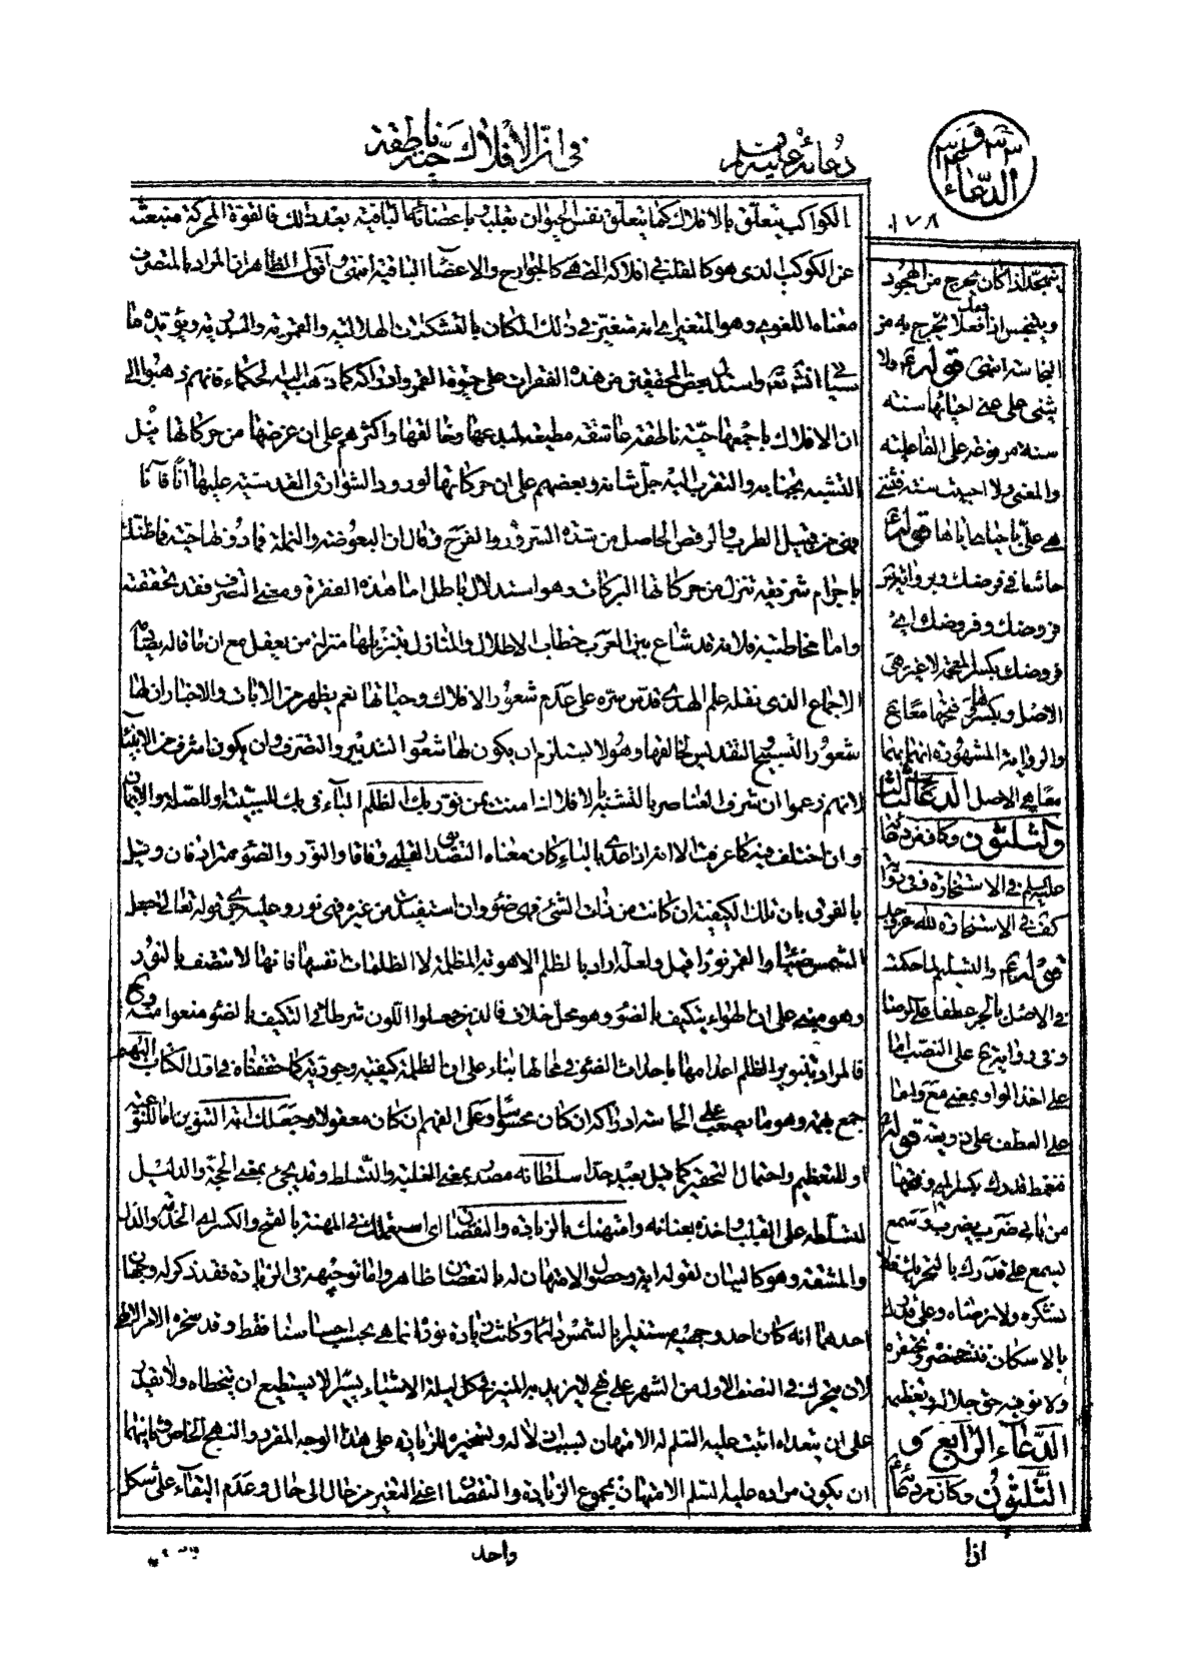 في ان الأفلاك حيّة ناطقة
دعائه عليه السلم
٣٣ و ٣٤
الدعاء
١٧٨
الكواكب يتعلق بالافلاك كما يتعلق نفس الحيوان بقلبه و باعضائه الباقية بعد ذلك فالقوة المحركة منبعثة
عن الكوكب الذي هو كالقلب في افلاكه التي هي كالجوارح والاعضاء الباقية انتهى و اقول الظاهر ان المراد بالمتصرف
معناه اللغوي وهو المتغير اي انه متغير في ذلك المكان بالتشكلات الهلالية والقمرية والبدرية ويؤيده ما
سيأتي واستدل بعض المحققين من هذه الفقرات على حيوة القمر وادراكه كما ذهب اليه الحكماء فانهم ذهبوا الى
ان الافلاك باجمعها حية ناطقة عاشقة مطيعة لمبدعها وخالقها واكثرهم على ان غرضها من حركاتها نيل
التشبه بجنابه والتقرب اليه جل شانه وبعضهم على ان حركاتها لورود الشوارق القدسية عليها آنا فآنا
فهي من قبيل الطرب والرقص الحاصل من شدة السرور والفرح وقال ان البعوضة والنملة فما دونها حية فما ظنك
باجرام شريفة تنزل من حركاتها البركات وهو استدلال باطل اما هذه الفقرة ومعنى التصرف فقد تحققته
واما مخاطبته فلانه قد شاع بين العرب خطاب الاطلال والمنازل بتنزيلها منزلة من يعقل مع ان ما قاله يضاد
الاجماع الذي نقله علم الهدى قدس سره على عدم شعور الافلاك وحياتها نعم يظهر من الايات والاخبار ان لها
شعور التسبيح والتقديس لخالقها وهو لا يستلزم ان يكون لها شعور التدبير والتصرف وان يكون اشرف من الانبياء
لانهم زعموا ان شرف العناصر بالتشبه بالافلاك امنت بمن نور بك الظلم الباء في بك للسببية او للصلة والايمان
وان اختلف فيه كما عرفت الا انه اذا عدي بالباء كان معناه التصديق القلبي وفاقا والنور والضوء مترادفان وقيل
بالفرق بان تلك الكيفية ان كانت من ذات الشيء فهي ضوء وان استفيدت من غيره فهي نور وعليه جرى قوله تعالى جعل
الشمس ضياء والقمر نورا قيل ولعله اراد بالظلم الاهوية المظلمة لا الظلمات نفسها فانها لا تتصف بالنور
وهو مبني على ان الهواء يتكيف بالضوء وهو محل خلاف فالذين جعلوا اللون شرطا في التكيف بالضوء منعوا منه وح
فالمراد بتنوير الظلم اعدامها باحداث الضوء في محالها بناء على ان الظلمة كيفية وجودية كما حققناه في اول الكتاب البهم
جمع بهمة وهو ما يصعب على الحاسة ادراكه ان كان محسوسا وعلى الفهم ان كان معقولا وجعلك اية التنوين اما للتنويه
او للتعظيم واحتمال التحقير كما قيل بعيد جدا سلطانه مصدر بمعنى الغلبة والتسلط وقد يجئ بمعنى الحجة والدليل
لتسلطه على القلب واخذه بعنانه وامتهنك بالزيادة والنقصان اي استعملك في المهنة بالفتح والكسر اي الخدمة والذل
والمشقة وهو كالبيان لقوله اية وحصول الامتهان له بالنقصان ظاهر واما توجيهه في الزيادة فقد ذكر له وجهان
احدهما انه كان احد وجهيه مستنيرا بالشمس دائما وكانت زيادة نوره انما هي بحسب احساسنا فقط وقد سخره الامر الالهي
لان يتحرك في النصف الاول من الشهر على نهج لا يزيد به المنير في كل ليلة الا شيئا يسيرا لا يستطيع ان يتخطاه ولا يقدر
على ان يتعداه اثبت عليه السلم له الامتهان بسبب اذلاله وتسخيره للزيادة على هذا الوجه المقرر والنهج الخاص وثانيهما
ان يكون مراده عليه السلم الامتهان بمجموع الزيادة والنقصان اعني التغير من حال الى حال وعدم البقاء على شكل
واحد
يتهجد اذا كان يخرج من الهجود
ويتنجس اذا فعل فعلا يخرج به من
النجاسة انتهى قوله ع ولا
يثنى على باحيائها سنة
سنة مرفوعة على الفاعلية
والمعنى ولا احييت سنة فتثني
هي علي باحياها اياها قوله ع
حاشا في فروضك وبرواية س
فروضك وفروضك اي
فروضك بكسر المعجمة لا غير هي
الاصل وبكسرها وفتحها معا في
والرواية المشهورة انهما بهما
معا في الاصل الدعاء الثالث
والثلثون وكان من دعائه
عليه السلم في الاستخارة وفي رواية
كف في الاستخارة لله عز وجل
قوله ع والتسليم لما حكمت
في الاصل بالجر عطفا على الرضا
وفي رواية ع على النصب اما
على اخذ الواو بمعنى مع واما
على العطف على رويته قوله ع
فنغمط قدرك بكسر الميم وفتحها
من بابي ضرب يضرب وسمع
يسمع على قدرك بالتحريك فلا
نشكره ولا نرضاه وعلى قدرك
بالاسكان نستحضر ونحتقره
ولا نوفيه حق جلاله وتعظيمه
الدعاء الرابع و
الثلثون وكان من دعائه ع
اذا